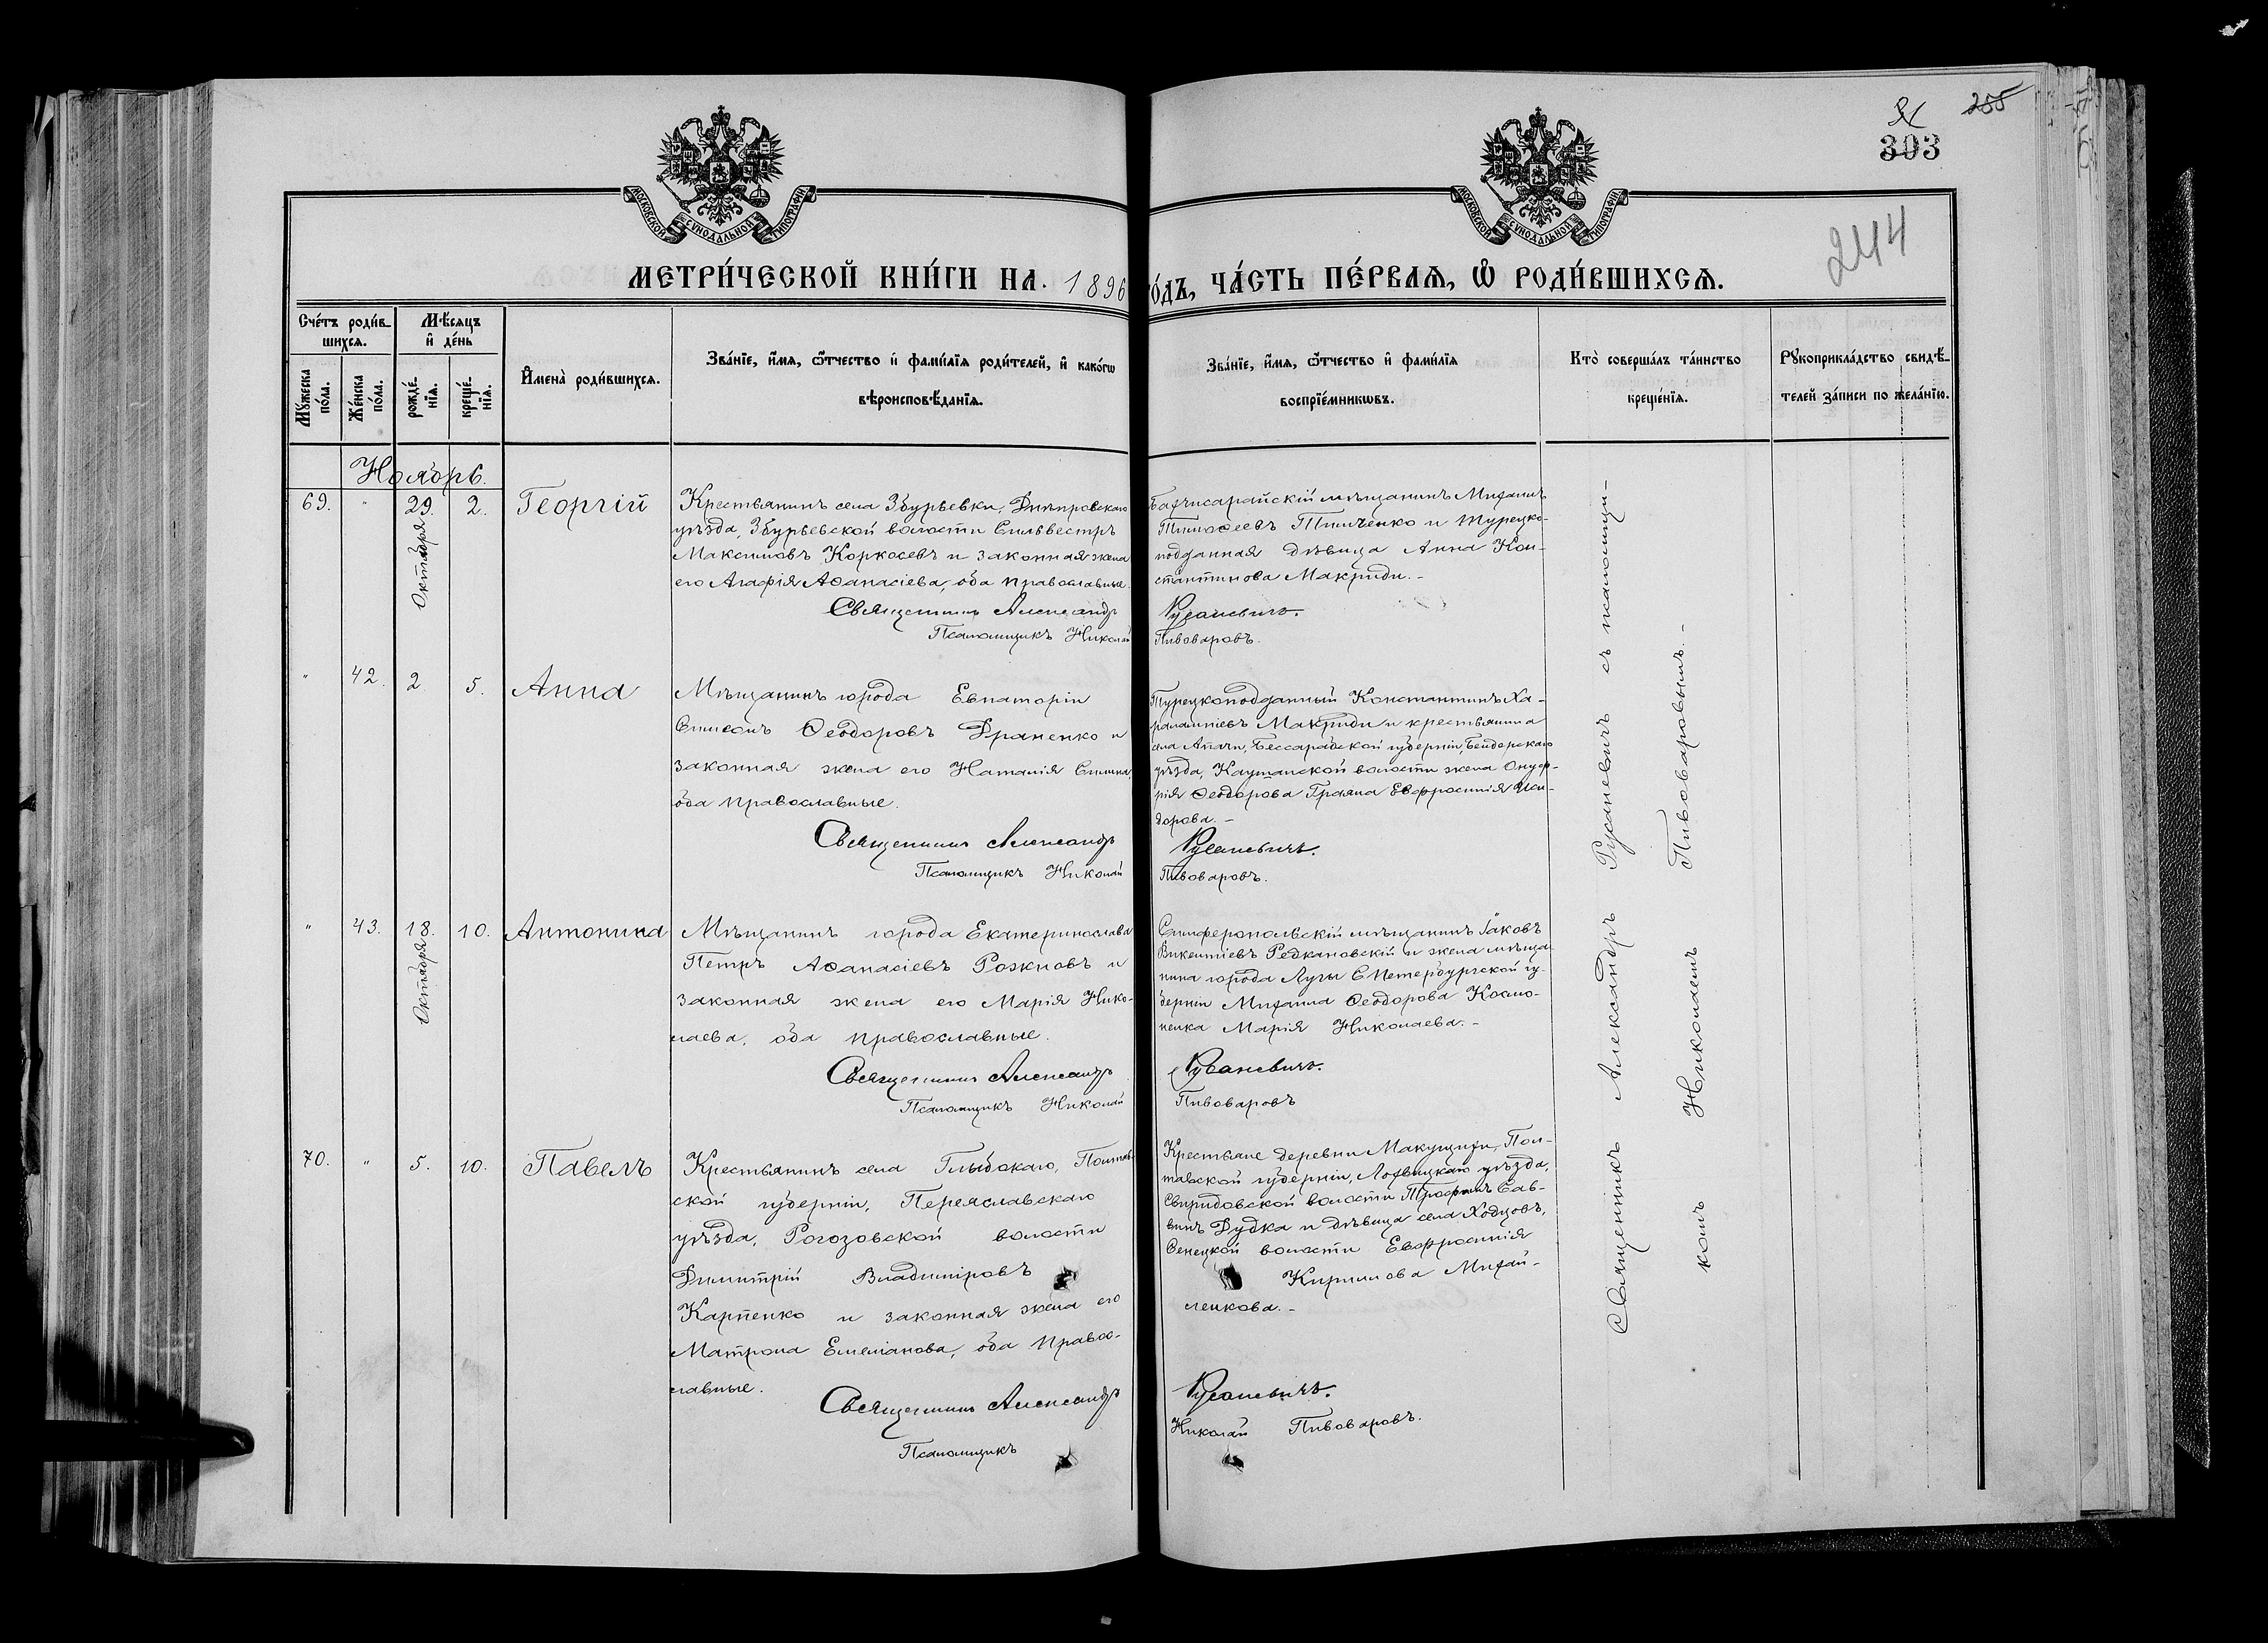 255
303
244
МОСКОВСКОЙ СѴНОДАЛЬНОЙ ТИПОГРАФІИ
МОСКОВСКОЙ СѴНОДАЛЬНОЙ ТИПОГРАФІИ
МЕТРИ́ЧЕСКОЙ КНИ́ГИ НА 1896
О́ДЪ, ЧА́СТЬ ПЕ́РВАѦ, Ѡ҆ РОДИ́ВШИХСѦ.
Сче́тъ роди́в-
шихсѧ.
Мꙋ́жеска по́ла.
Же́нска по́ла.
Мѣ́сѧцъ
и҆ де́нь
рожде́-
нїѧ.
креще́-
нїѧ.
И҆мена̀ роди́вшихсѧ.
Зва́нїе, и҆́мѧ, ѻ҆́тчество и҆ фами́лїѧ роди́телей, и҆ како́гѡ
вѣроисповѣ́данїѧ.
Зва́нїе, и҆́мѧ, ѻ҆́тчество и҆ фами́лїѧ
воспрїе́мникѡвъ.
Кто̀ соверша́лъ та́инство
креще́нїѧ.
Рꙋкоприкла́дство свидѣ́-
телей за́писи по жела́нїю.
Ноябрь.
69. " 29. Октября 2. Георгій
Крестьянинъ села Збурьевки, Днѣпровскаго
уѣзда, Збурьевской волости Сильвестръ
Максимовъ Коркосевъ и законная жена
его Агафія Аѳанасіева, оба православные.
Священникъ Александръ
Псаломщикъ Николай
Бахчисарайскій мѣщанинъ Михаилъ
Тимоѳеевъ Тимченко и турецко-
подданная дѣвица Анна Кон-
стантинова Макриди.-
Русаневичъ.
Пивоваровъ.
" 42. 2 5. Анна
Мѣщанинъ города Евпаторіи
Симеонъ Ѳеодоровъ Драненко и
законная жена его Наталія
оба православные.
Священникъ Александръ
Псаломщикъ Николай
Турецкоподданный Константинъ Ха-
ралампіевъ Макриди и крестьянина
села Бессарабской губерніи, Бендерскаго
уѣзда, волости жена Онуф-
рія Ѳеодорова Граяна Евфросинія Иси-
дорова.-
Русаневичъ.
Пивоваровъ.
" 43. 18. Октября 10. Антонина
Мѣщанинъ города Екатеринослава
Петръ Аѳанасіевъ Рожновъ и
законная жена его Марія Нико-
лаева, оба православные.
Священникъ Александръ
Псаломщикъ Николай
Симферопольскій мѣщанинъ Іаковъ
Викентіевъ Редкановскій и жена мѣща-
нина города Луги СПетербургской гу-
берніи Михаила Ѳеодорова Космо-
ненка Марія Николаева.-
Русаневичъ.
Пивоваровъ
70. " 5. 10. Павелъ
Крестьянинъ села Глыбокаго, Полтав-
ской губерніи, Переяславскаго
уѣзда, Рогозовской волости
Димитрій Владиміровъ
Карпенко и законная жена его
Матрона Емеліанова, оба право-
славные.
Священникъ Александръ
Псаломщикъ
Крестьяне деревни Макущихи, Пол-
тавской губерніи, Лохвицкаго уѣзда,
Свиридовской волости Трофимъ Сав-
винъ Дудка и дѣвица села Ходцовъ,
Сенецкой волости Евфросинія
Кириллова Михай-
ленкова.-
Русаневичъ.
Николай Пивоваровъ.
Священникъ Александръ Русаневичъ съ псаломщи-
комъ Николаемъ Пивоваровымъ.-